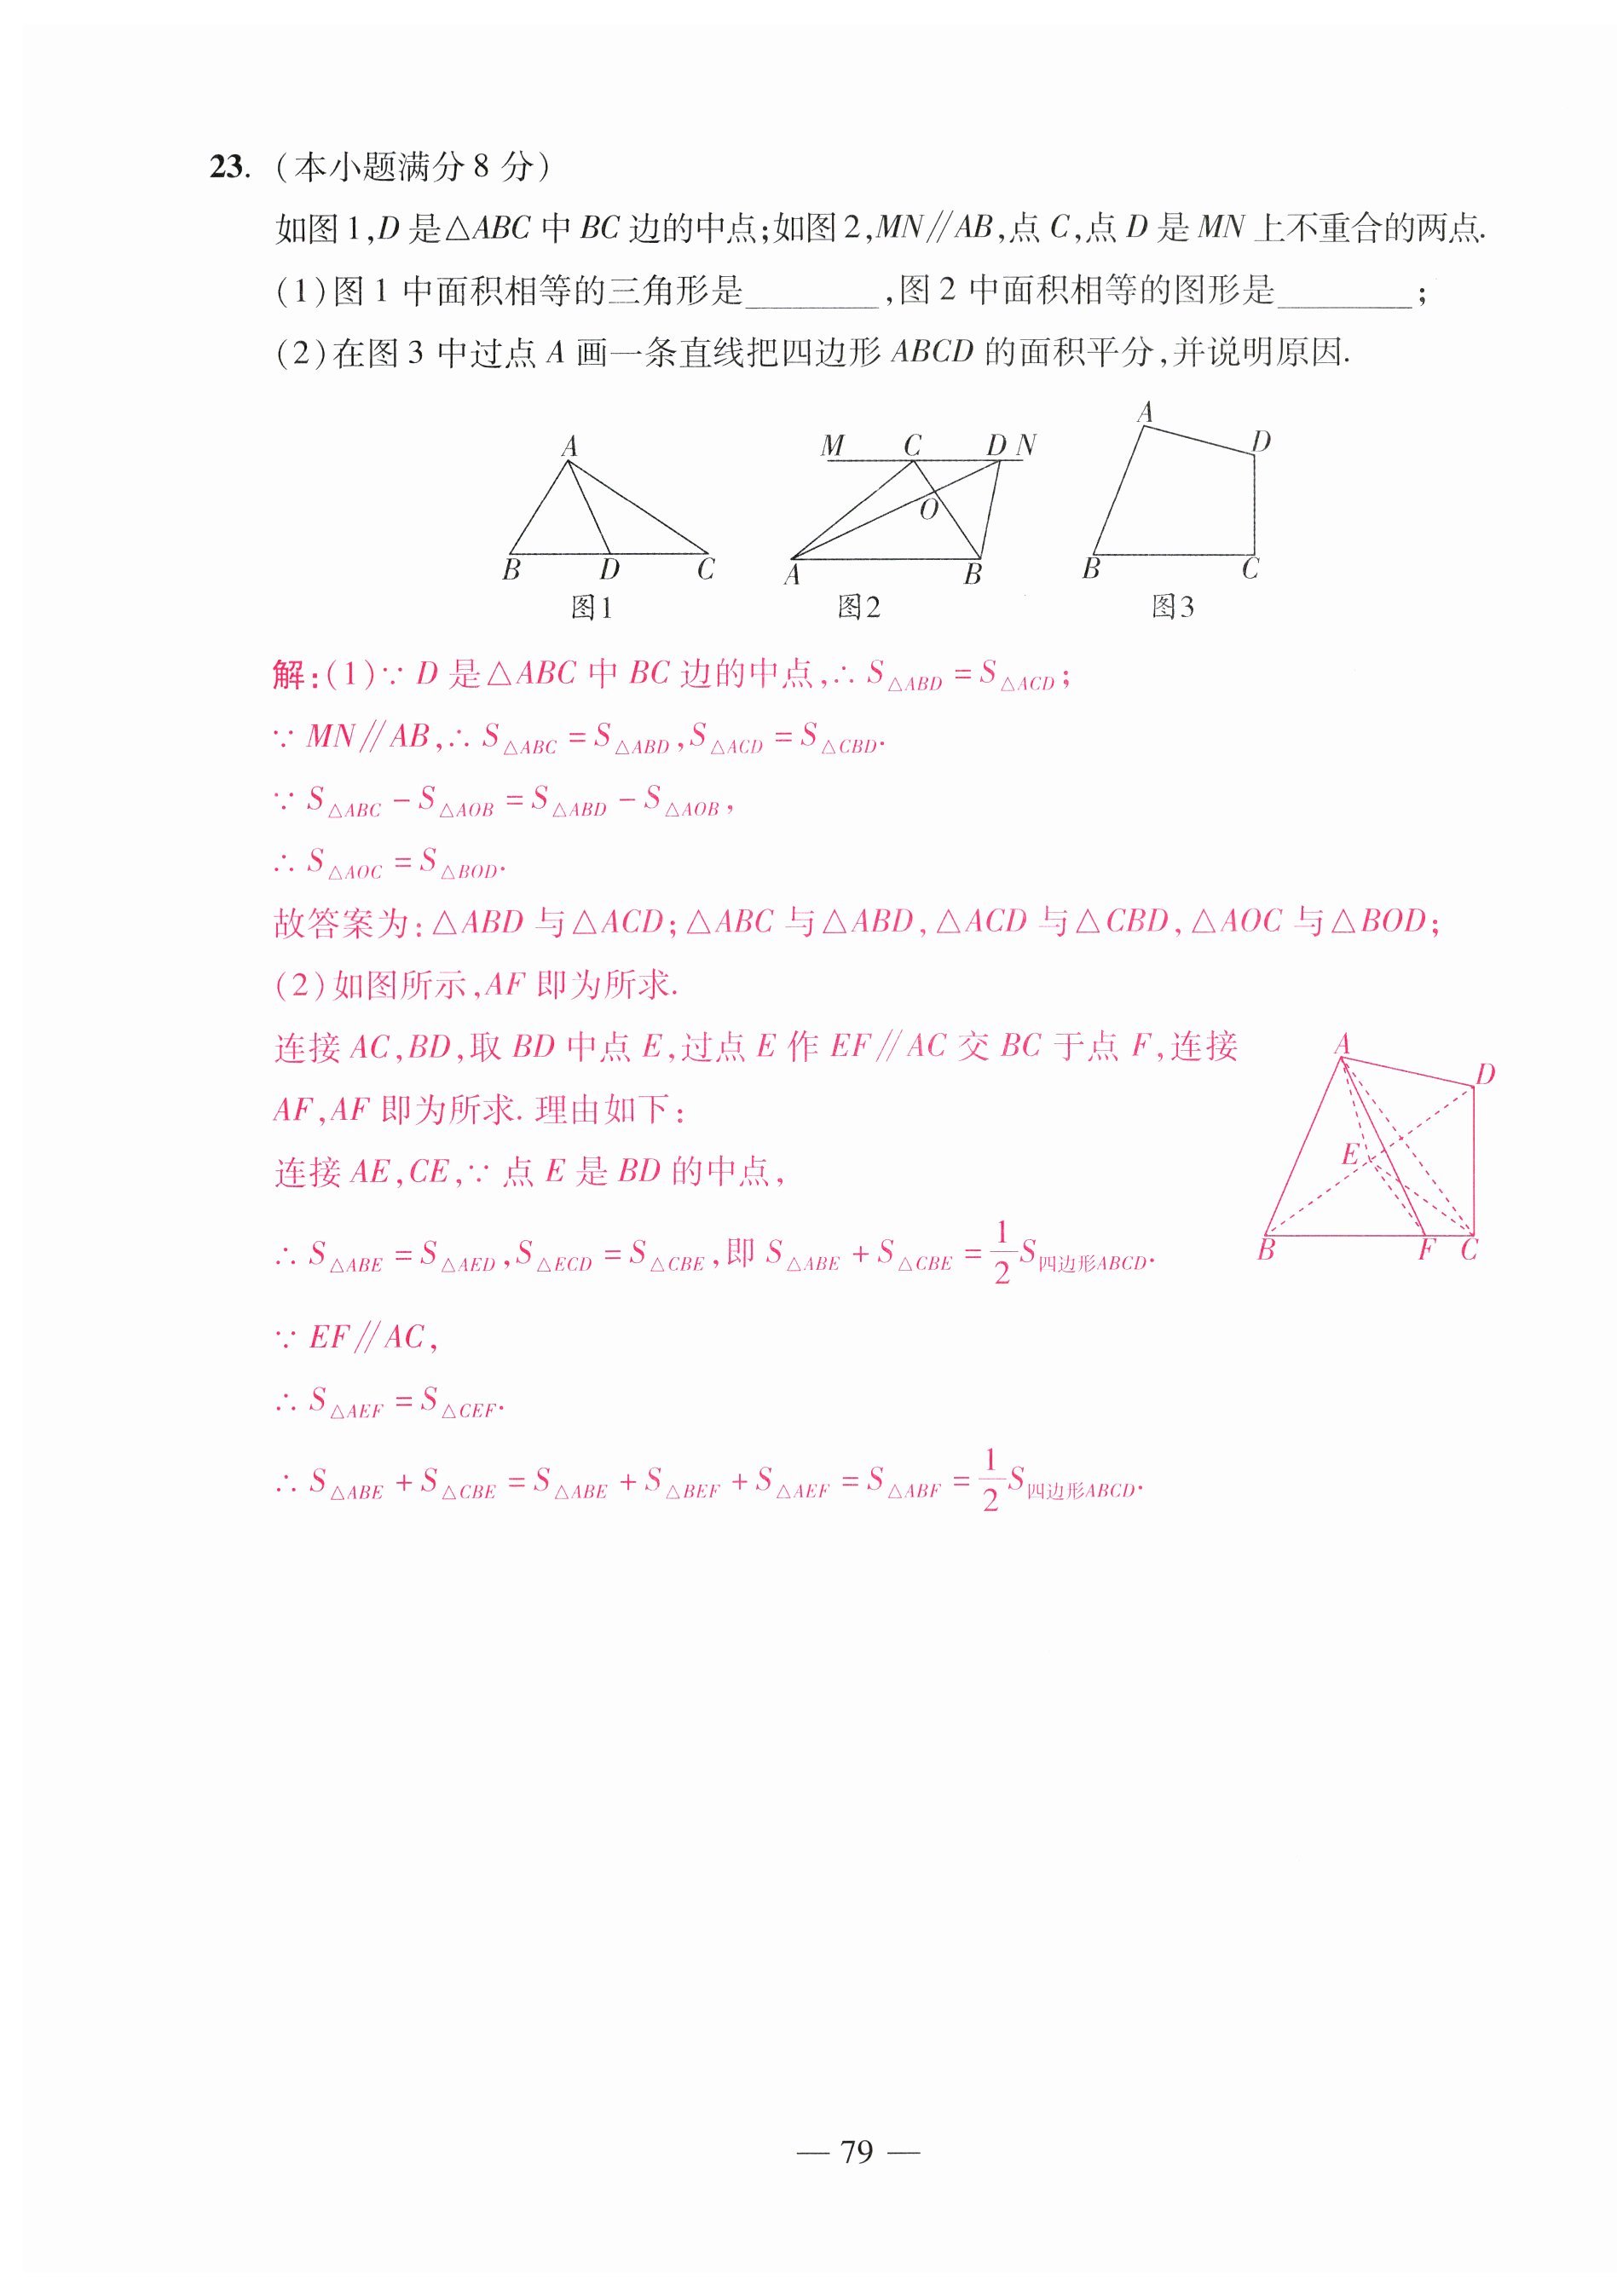 23. (本小题满分8分)
如图1,D是△ABC中BC边的中点;如图2,MN∥AB,点C,点D是MN上不重合的两点.
(1)图1中面积相等的三角形是________,图2中面积相等的图形是________;
(2)在图3中过点A画一条直线把四边形ABCD的面积平分,并说明原因.
A
B D C
图1
M C D N
O
A B
图2
A
D
B C
图3
解:(1)∵D是△ABC中BC边的中点,∴S△ABD=S△ACD;
∵MN∥AB,∴S△ABC=S△ABD,S△ACD=S△CBD.
∵S△ABC-S△AOB=S△ABD-S△AOB,
∴S△AOC=S△BOD.
故答案为:△ABD与△ACD;△ABC与△ABD,△ACD与△CBD,△AOC与△BOD;
(2)如图所示,AF即为所求.
连接AC,BD,取BD中点E,过点E作EF∥AC交BC于点F,连接
AF,AF即为所求.理由如下:
连接AE,CE,∵点E是BD的中点,
∴S△ABE=S△AED,S△ECD=S△CBE,即S△ABE+S△CBE=1/2S四边形ABCD.
∵EF∥AC,
∴S△AEF=S△CEF.
∴S△ABE+S△CBE=S△ABE+S△BEF+S△AEF=S△ABF=1/2S四边形ABCD.
A
D
E
B F C
— 79 —